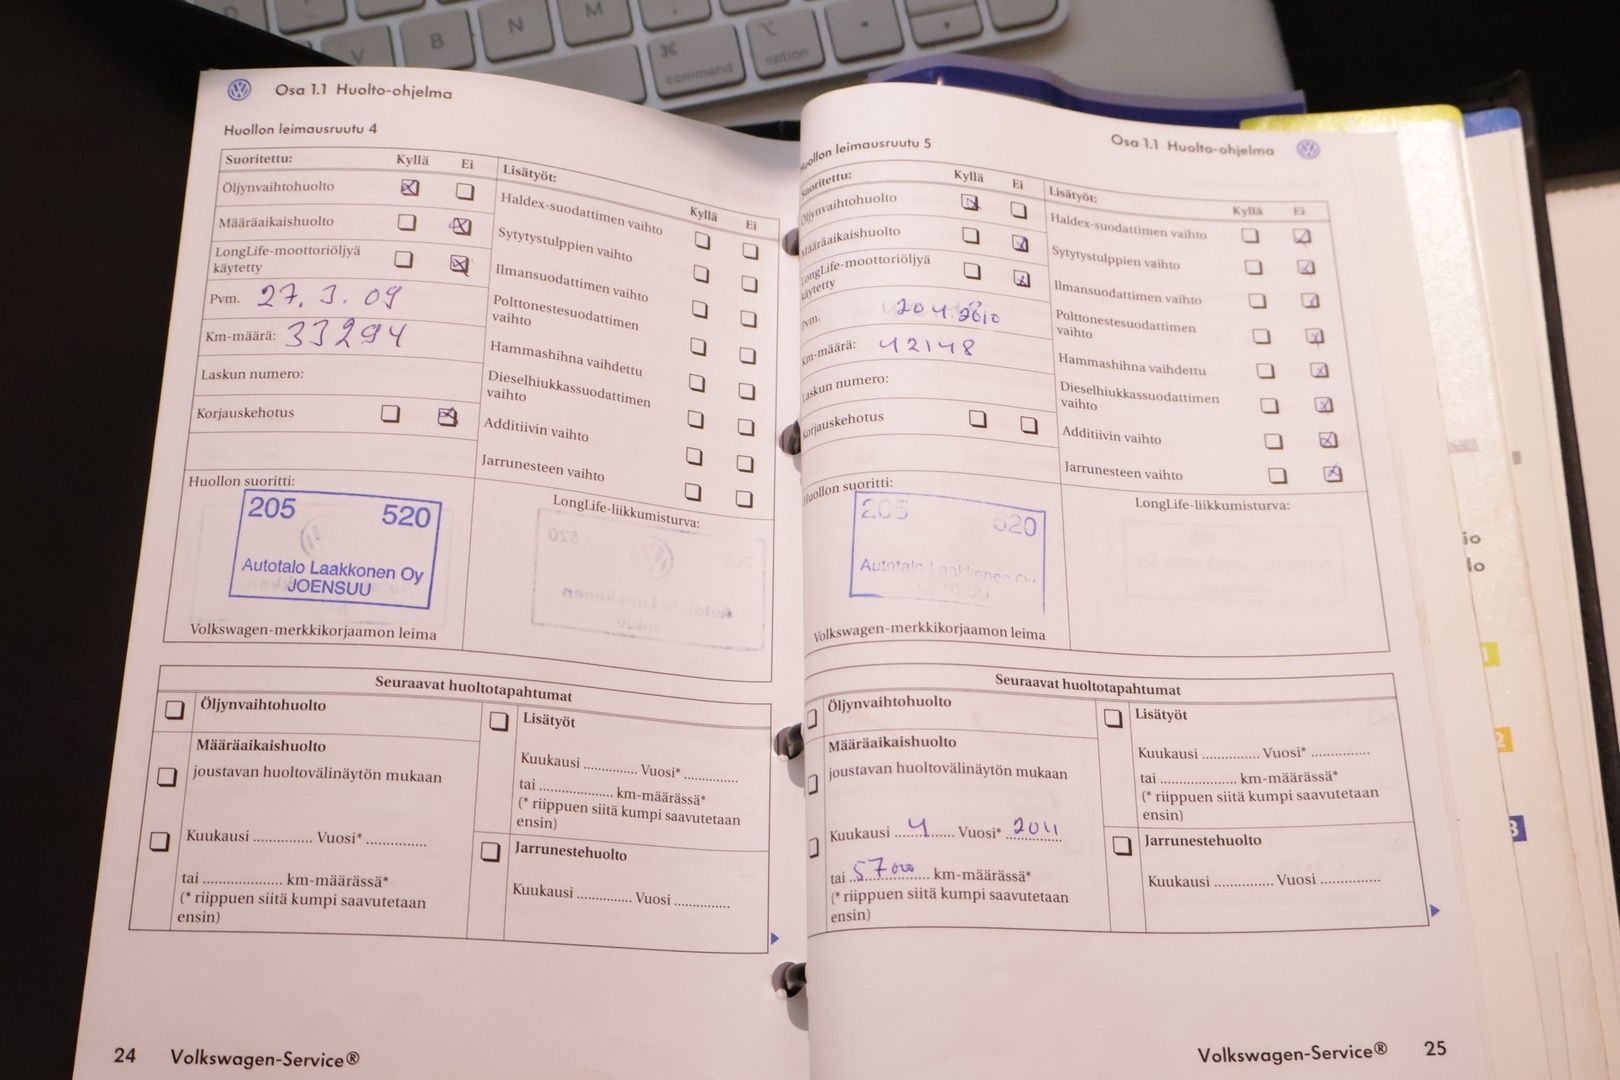 V
B
N
M
⌘
command
⌥
option
Osa 1.1 Huolto-ohjelma
Huollon leimausruutu 4
Suoritettu: Kyllä Ei
Öljynvaihtohuolto
Määräaikaishuolto
LongLife-moottoriöljyä
käytetty
Pvm. 27.3.09
Km-määrä: 33294
Laskun numero:
Korjauskehotus
Lisätyöt:
Kyllä Ei
Haldex-suodattimen vaihto
Sytytystulppien vaihto
Ilmansuodattimen vaihto
Polttonestesuodattimen
vaihto
Hammashihna vaihdettu
Dieselhiukkassuodattimen
vaihto
Additiivin vaihto
Jarrunesteen vaihto
Huollon suoritti:
205 520
Autotalo Laakkonen Oy
JOENSUU
Volkswagen-merkkikorjaamon leima
LongLife-liikkumisturva:
Seuraavat huoltotapahtumat
Öljynvaihtohuolto
Määräaikaishuolto
joustavan huoltovälinäytön mukaan
Kuukausi .............. Vuosi* ..............
tai ................... km-määrässä*
(* riippuen siitä kumpi saavutetaan
ensin)
Lisätyöt
Kuukausi ............. Vuosi* .............
tai .................. km-määrässä*
(* riippuen siitä kumpi saavutetaan
ensin)
Jarrunestehuolto
Kuukausi ............. Vuosi .............
24 Volkswagen-Service®
Osa 1.1 Huolto-ohjelma
Huollon leimausruutu 5
Suoritettu: Kyllä Ei
Öljynvaihtohuolto
Määräaikaishuolto
LongLife-moottoriöljyä
käytetty
Pvm.
Km-määrä: 42148
Laskun numero:
Korjauskehotus
Lisätyöt:
Kyllä Ei
Haldex-suodattimen vaihto
Sytytystulppien vaihto
Ilmansuodattimen vaihto
Polttonestesuodattimen
vaihto
Hammashihna vaihdettu
Dieselhiukkassuodattimen
vaihto
Additiivin vaihto
Jarrunesteen vaihto
Huollon suoritti:
205 520
Autotalo Laakkonen Oy
JOENSUU
Volkswagen-merkkikorjaamon leima
LongLife-liikkumisturva:
Seuraavat huoltotapahtumat
Öljynvaihtohuolto
Määräaikaishuolto
joustavan huoltovälinäytön mukaan
Kuukausi ....4.... Vuosi* 2011
tai 57000 km-määrässä*
(* riippuen siitä kumpi saavutetaan
ensin)
Lisätyöt
Kuukausi .............. Vuosi* ..............
tai .................. km-määrässä*
(* riippuen siitä kumpi saavutetaan
ensin)
Jarrunestehuolto
Kuukausi .............. Vuosi ..............
Volkswagen-Service® 25